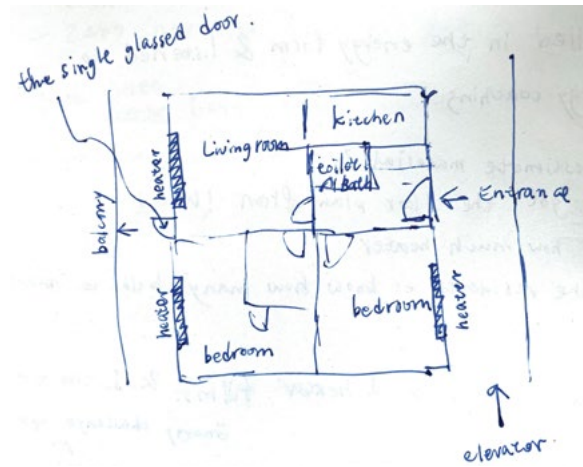 the single glassed door.
kitchen
Livingroom
toilet
& Bath
heater
balcony
Entrance
heater
bedroom
bedroom
heater
elevator